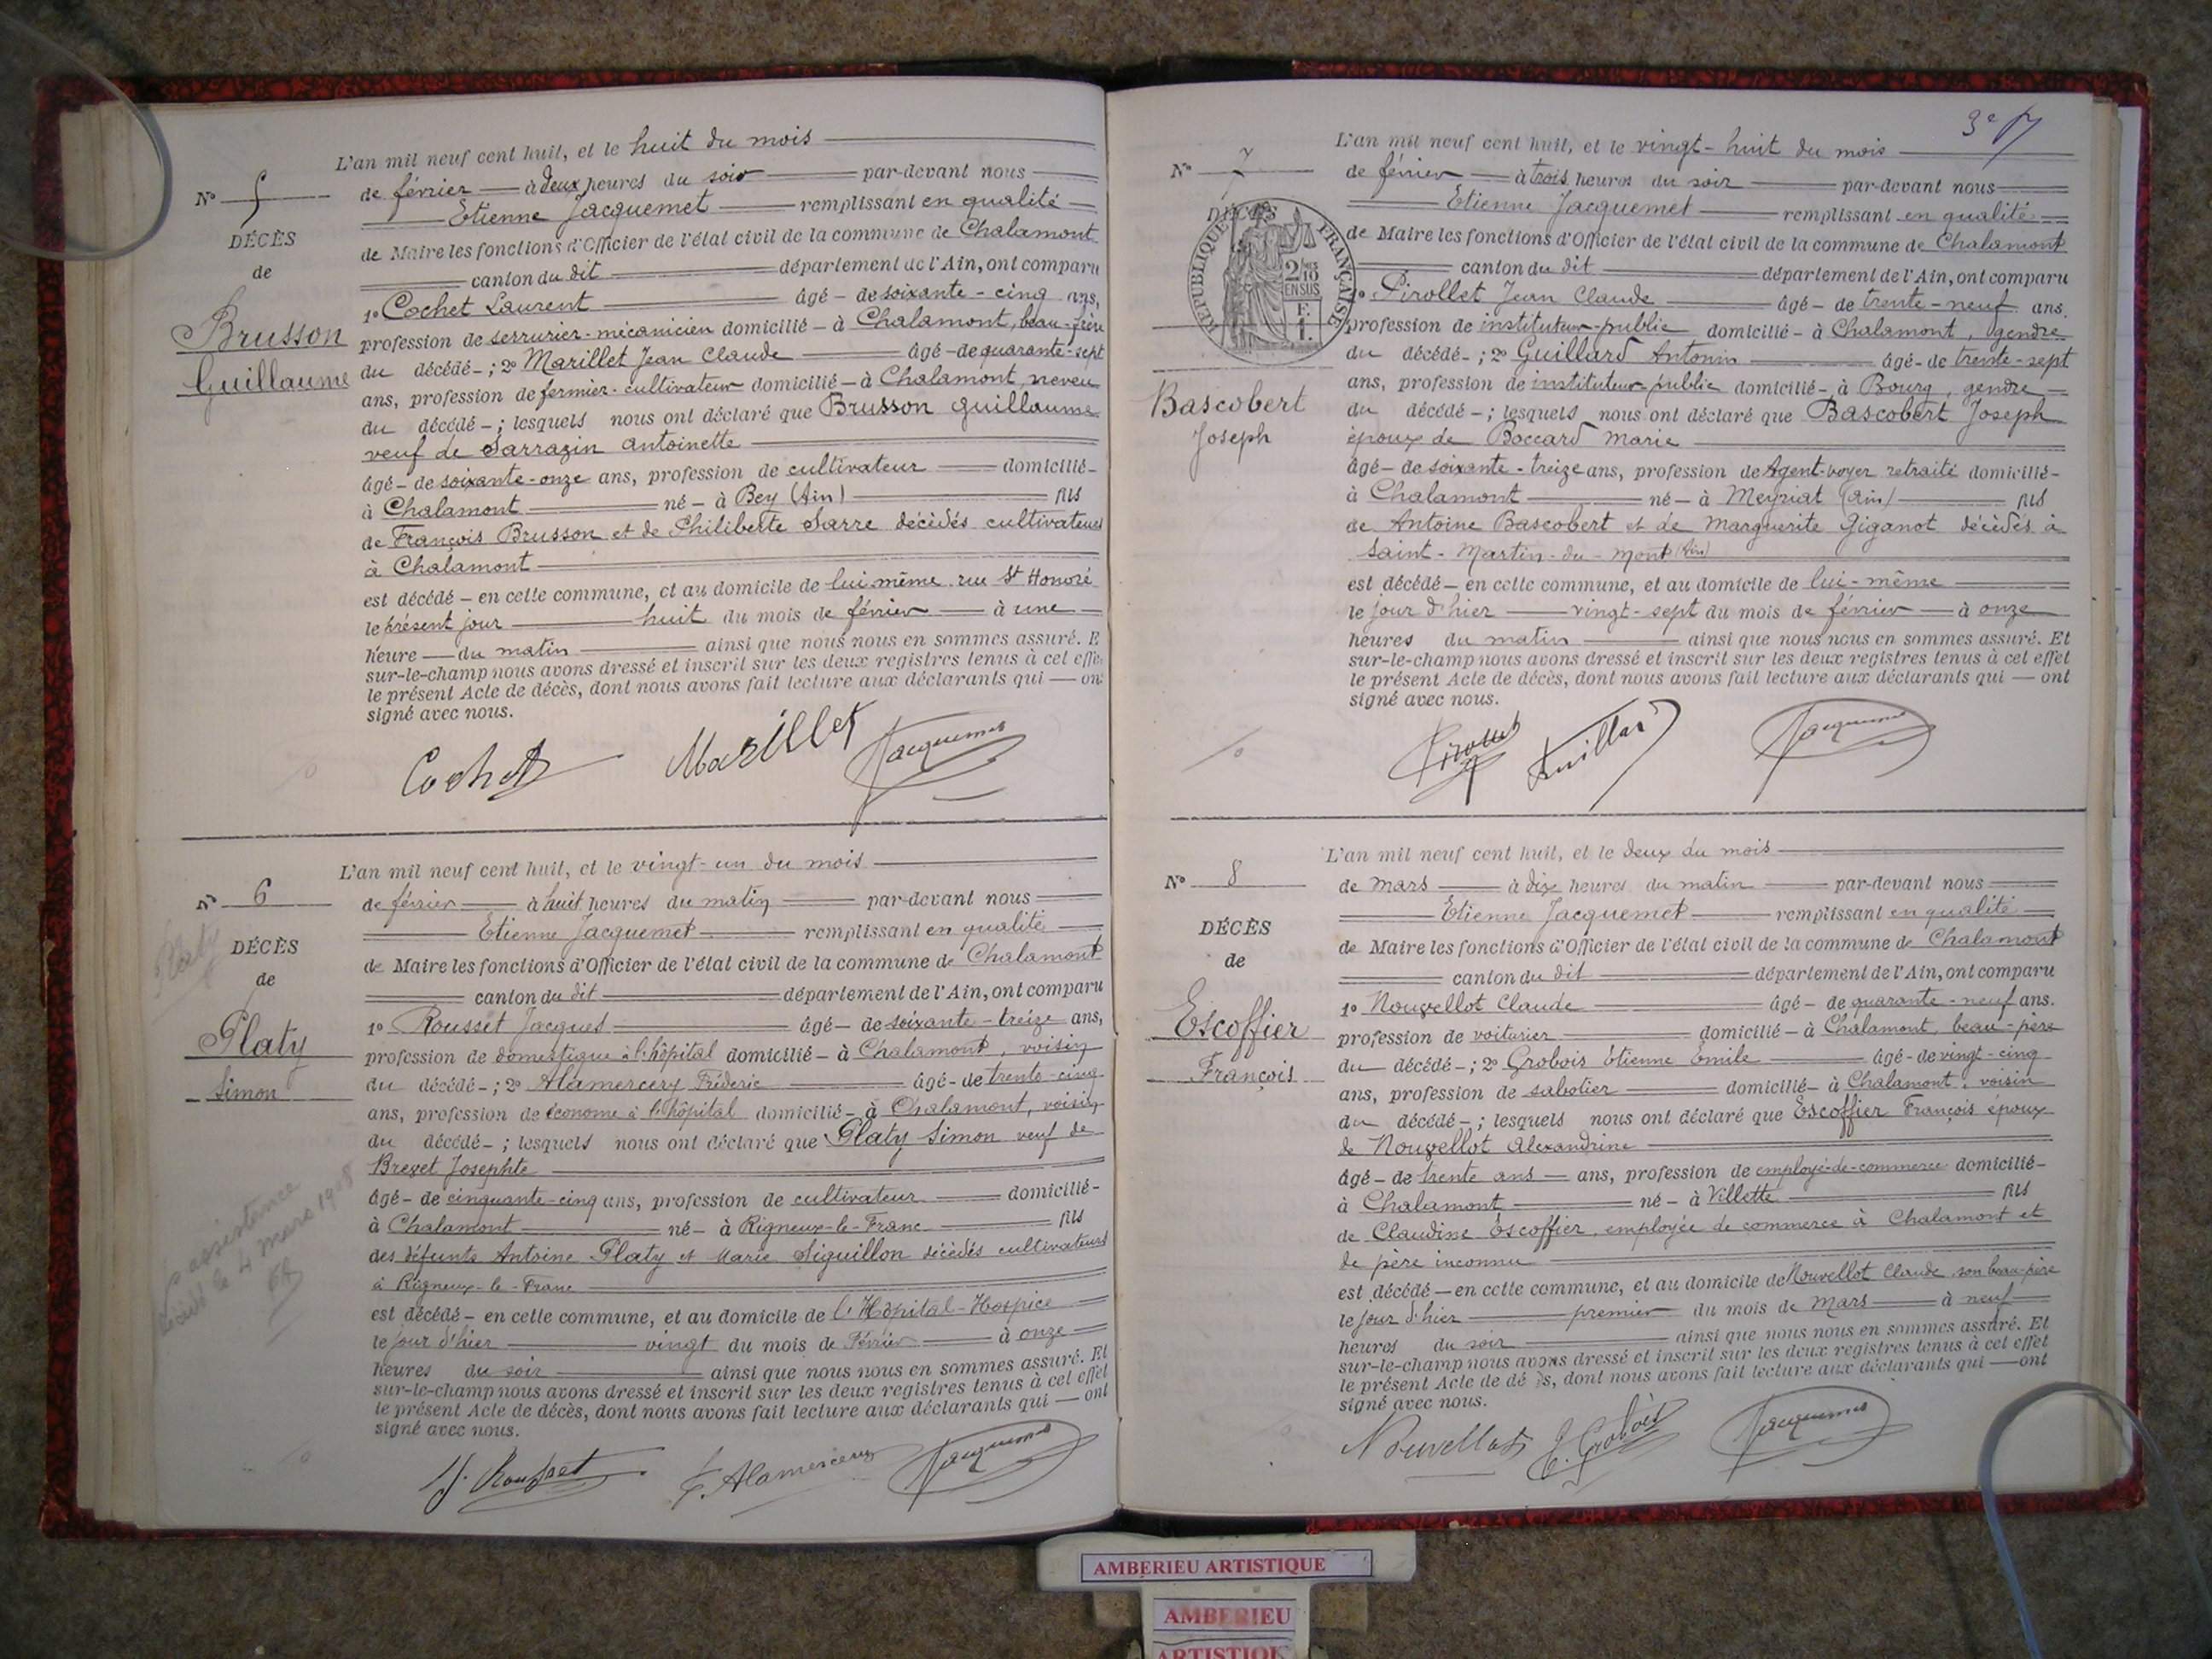 L'an mil neuf cent huit, et le huit du mois
N° 5
de février à deux heures du soir par-devant nous
Etienne Jacquemet remplissant en qualité
DÉCÈS
de Maire les fonctions d'Officier de l'état civil de la commune de Chalamont
de
canton du dit département de l'Ain, ont comparu
1° Cochet Laurent âgé - de soixante-cinq ans,
Brusson
profession de serrurier-mécanicien domicilié - à Chalamont, beau-frère
Guillaume
du décédé - ; 2° Marillet Jean Claude âgé - de quarante-sept
ans, profession de fermier-cultivateur domicilié - à Chalamont, neveu
du décédé - ; lesquels nous ont déclaré que Brusson Guillaume
veuf de Sarrazin Antoinette
âgé - de soixante-onze ans, profession de cultivateur domicilié -
à Chalamont né - à Bey (Ain) fils
de François Brusson et de Philiberte Sarre décédés cultivateurs
à Chalamont
est décédé - en cette commune, et au domicile de lui même rue St Honoré
le présent jour huit du mois de février à une
heure du matin ainsi que nous nous en sommes assuré. E
sur-le-champ nous avons dressé et inscrit sur les deux registres tenus à cet effe
le présent Acte de décès, dont nous avons fait lecture aux déclarants qui — on
signé avec nous.
Cochet Marillet Jacquemet
L'an mil neuf cent huit, et le vingt-un du mois
N° 6
de février à huit heures du matin par-devant nous
Etienne Jacquemet remplissant en qualité
Platy
DÉCÈS
de Maire les fonctions d'Officier de l'état civil de la commune de Chalamont
de
canton du dit département de l'Ain, ont comparu
1° Rousset Jacques âgé - de soixante-treize ans,
Platy
profession de domestique à l'hôpital domicilié - à Chalamont, voisin
Simon
du décédé - ; 2° Alamercery Fréderic âgé - de trente-cinq
ans, profession de économe à l'hôpital domicilié - à Chalamont, voisin
du décédé - ; lesquels nous ont déclaré que Platy Simon veuf de
Brevet Josephte
âgé - de cinquante-cinq ans, profession de cultivateur domicilié -
à Chalamont né - à Rigneux-le-Franc fils
des défunts Antoine Platy et Marie Siguillon décédés cultivateurs
à Rigneux-le-Franc
assistance
le 4 mars 1908
est décédé - en cette commune, et au domicile de l'Hôpital-Hospice
le jour d'hier vingt du mois de Février à onze
heures du soir ainsi que nous nous en sommes assuré. Et
sur-le-champ nous avons dressé et inscrit sur les deux registres tenus à cet effet
le présent Acte de décès, dont nous avons fait lecture aux déclarants qui — ont
signé avec nous.
J. Rousset F. Alamercery Jacquemet
3e
L'an mil neuf cent huit, et le vingt-huit du mois
N° 7
de février à trois heures du soir par-devant nous
Etienne Jacquemet remplissant en qualité
DÉCÈS
RÉPUBLIQUE FRANÇAISE
2/10 EN SUS
F. 1.
de Maire les fonctions d'Officier de l'état civil de la commune de Chalamont
canton du dit département de l'Ain, ont comparu
1° Pirollet Jean Claude âgé - de trente-neuf ans.
profession de instituteur-public domicilié - à Chalamont, gendre
du décédé - ; 2° Guillard Antonin âgé - de trente-sept
ans, profession de instituteur-public domicilié - à Bourg, gendre
Bascobert
du décédé - ; lesquels nous ont déclaré que Bascobert Joseph
Joseph
époux de Boccard Marie
âgé - de soixante-treize ans, profession de Agent-voyer retraité domicilié -
à Chalamont né - à Meyriat (Ain) fils
de Antoine Bascobert et de Marguerite Giganot décédés à
Saint-Martin-du-Mont (Ain)
est décédé - en cette commune, et au domicile de lui-même
le jour d'hier vingt-sept du mois de février à onze
heures du matin ainsi que nous nous en sommes assuré. Et
sur-le-champ nous avons dressé et inscrit sur les deux registres tenus à cet effet
le présent Acte de décès, dont nous avons fait lecture aux déclarants qui — ont
signé avec nous.
Pirollet Guillard Jacquemet
L'an mil neuf cent huit, et le deux du mois
N° 8
de mars à dix heures du matin par-devant nous
Etienne Jacquemet remplissant en qualité
DÉCÈS
de Maire les fonctions d'Officier de l'état civil de la commune de Chalamont
de
canton du dit département de l'Ain, ont comparu
1° Nouvellot Claude âgé - de quarante-neuf ans.
Escoffier
profession de voiturier domicilié - à Chalamont, beau-père
François
du décédé - ; 2° Grobois Etienne Emile âgé - de vingt-cinq
ans, profession de sabotier domicilié - à Chalamont, voisin
du décédé - ; lesquels nous ont déclaré que Escoffier François époux
de Nouvellot Alexandrine
âgé - de trente ans ans, profession de employé-de-commerce domicilié -
à Chalamont né - à Villette fils
de Claudine Escoffier, employée de commerce à Chalamont et
de père inconnu
est décédé - en cette commune, et au domicile de Nouvellot Claude son beau-père
le jour d'hier premier du mois de Mars à neuf
heures du soir ainsi que nous nous en sommes assuré. Et
sur-le-champ nous avons dressé et inscrit sur les deux registres tenus à cet effet
le présent Acte de dé ès, dont nous avons fait lecture aux déclarants qui — ont
signé avec nous.
Nouvellot E. Grobois Jacquemet
AMBERIEU ARTISTIQUE
AMBERIEU
ARTISTIQUE